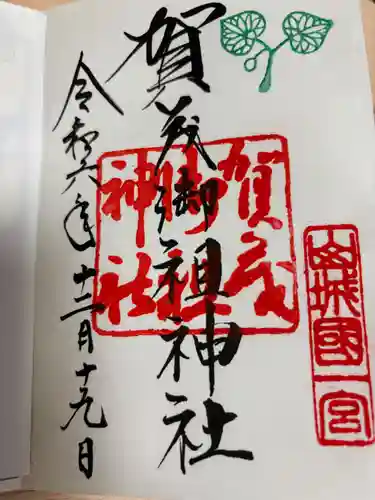 賀茂御祖神社
賀茂
御祖
神社
山城國一宮
令和六年十二月十九日